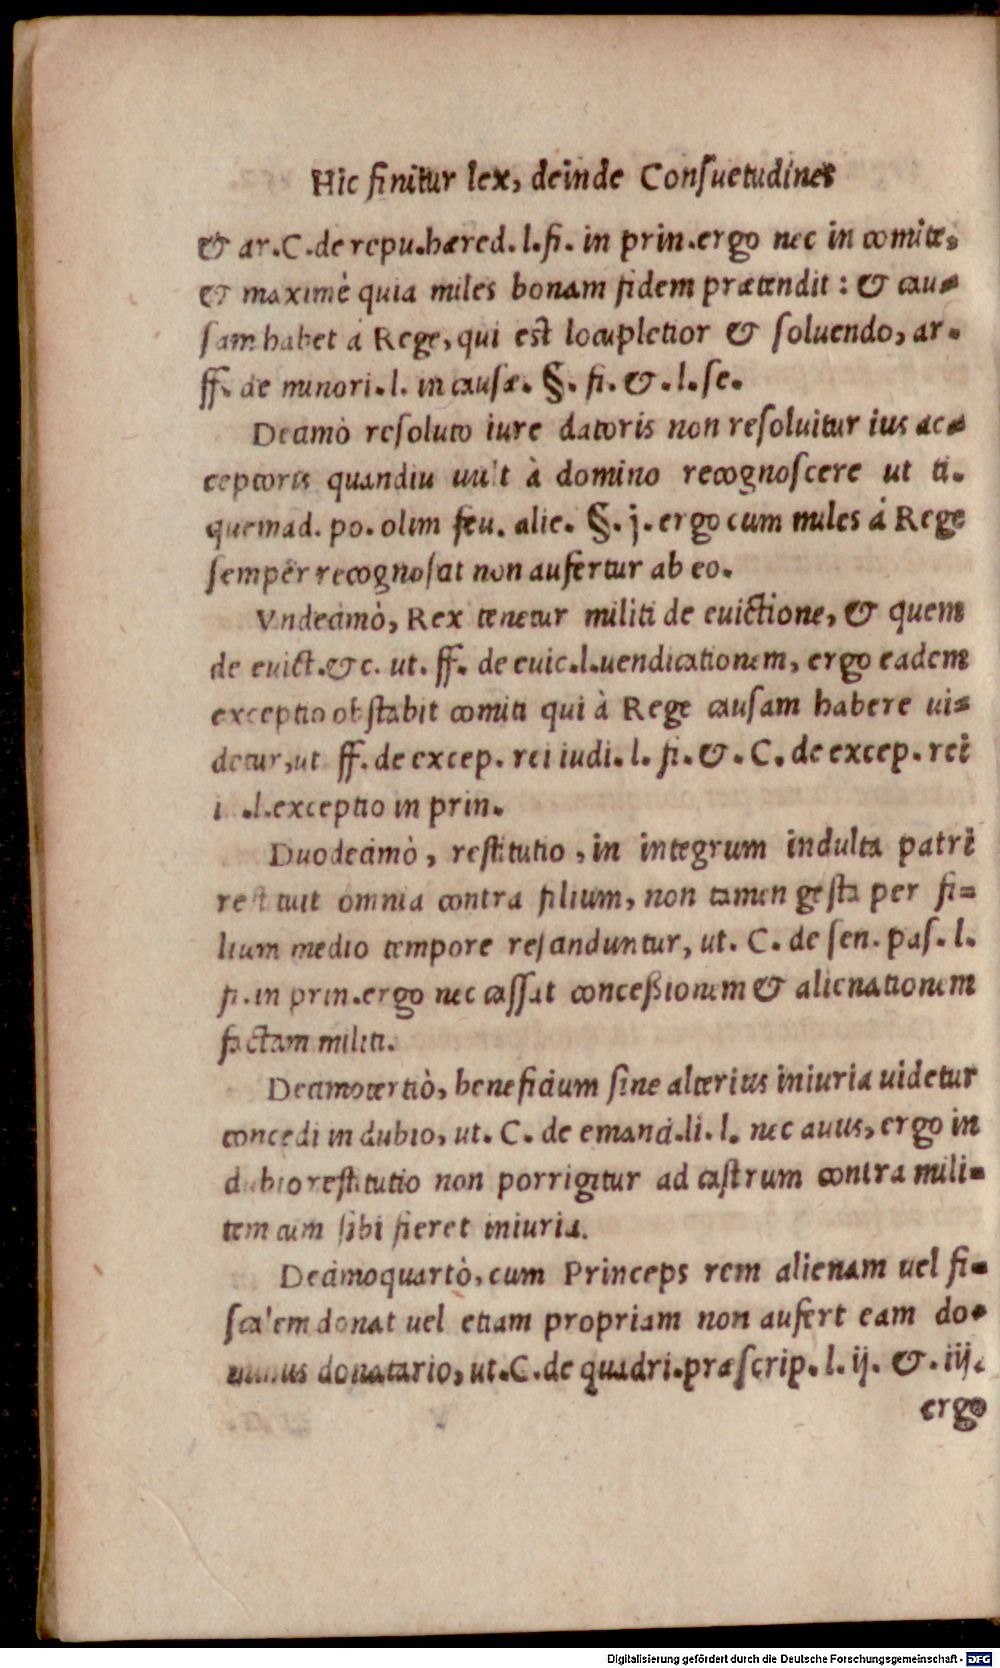 Hic finitur lex, deinde Consuetudines
& ar. C. de repu. hæred. l. fi. in prin. ergo nec in comite,
& maximè quia miles bonam fidem prætendit : & cau-
sam habet à Rege, qui est locupletior & soluendo, ar.
ff. de minori. l. in causæ. §. fi. &. l. se.
Decimò resoluto iure datoris non resoluitur ius ac-
ceptoris quandiu uult à domino recognoscere ut ti.
quemad. po. olim feu. alie. §. j. ergo cum miles á Rege
semper recognoscat non aufertur ab eo.
Vndecimò, Rex tenetur militi de euictione, & quem
de euict. &c. ut. ff. de euic. l. uendicationem, ergo eadem
exceptio obstabit comiti qui à Rege causam habere ui-
detur, ut ff. de excep. rei iudi. l. fi. &. C. de excep. rei
i .l. exceptio in prin.
Duodecimò, restitutio, in integrum indulta patri
restituit omnia contra filium, non tamen gesta per fi-
lium medio tempore rescinduntur, ut. C. de sen. pas. l.
fi. in prin. ergo nec cassat concessionem & alienationem
factam militi.
Decimotertiò, beneficium sine alterius iniuria uidetur
concedi in dubio, ut. C. de emanci. li. l. nec auus, ergo in
dubio restitutio non porrigitur ad castrum contra mili-
tem cum sibi fieret iniuria.
Decimoquartò, cum Princeps rem alienam uel fi-
scalem donat uel etiam propriam non aufert eam do-
minus donatario, ut. C. de quadri. præscrip. l. ij. &. iij.
ergo
Digitalisierung gefördert durch die Deutsche Forschungsgemeinschaft - DFG